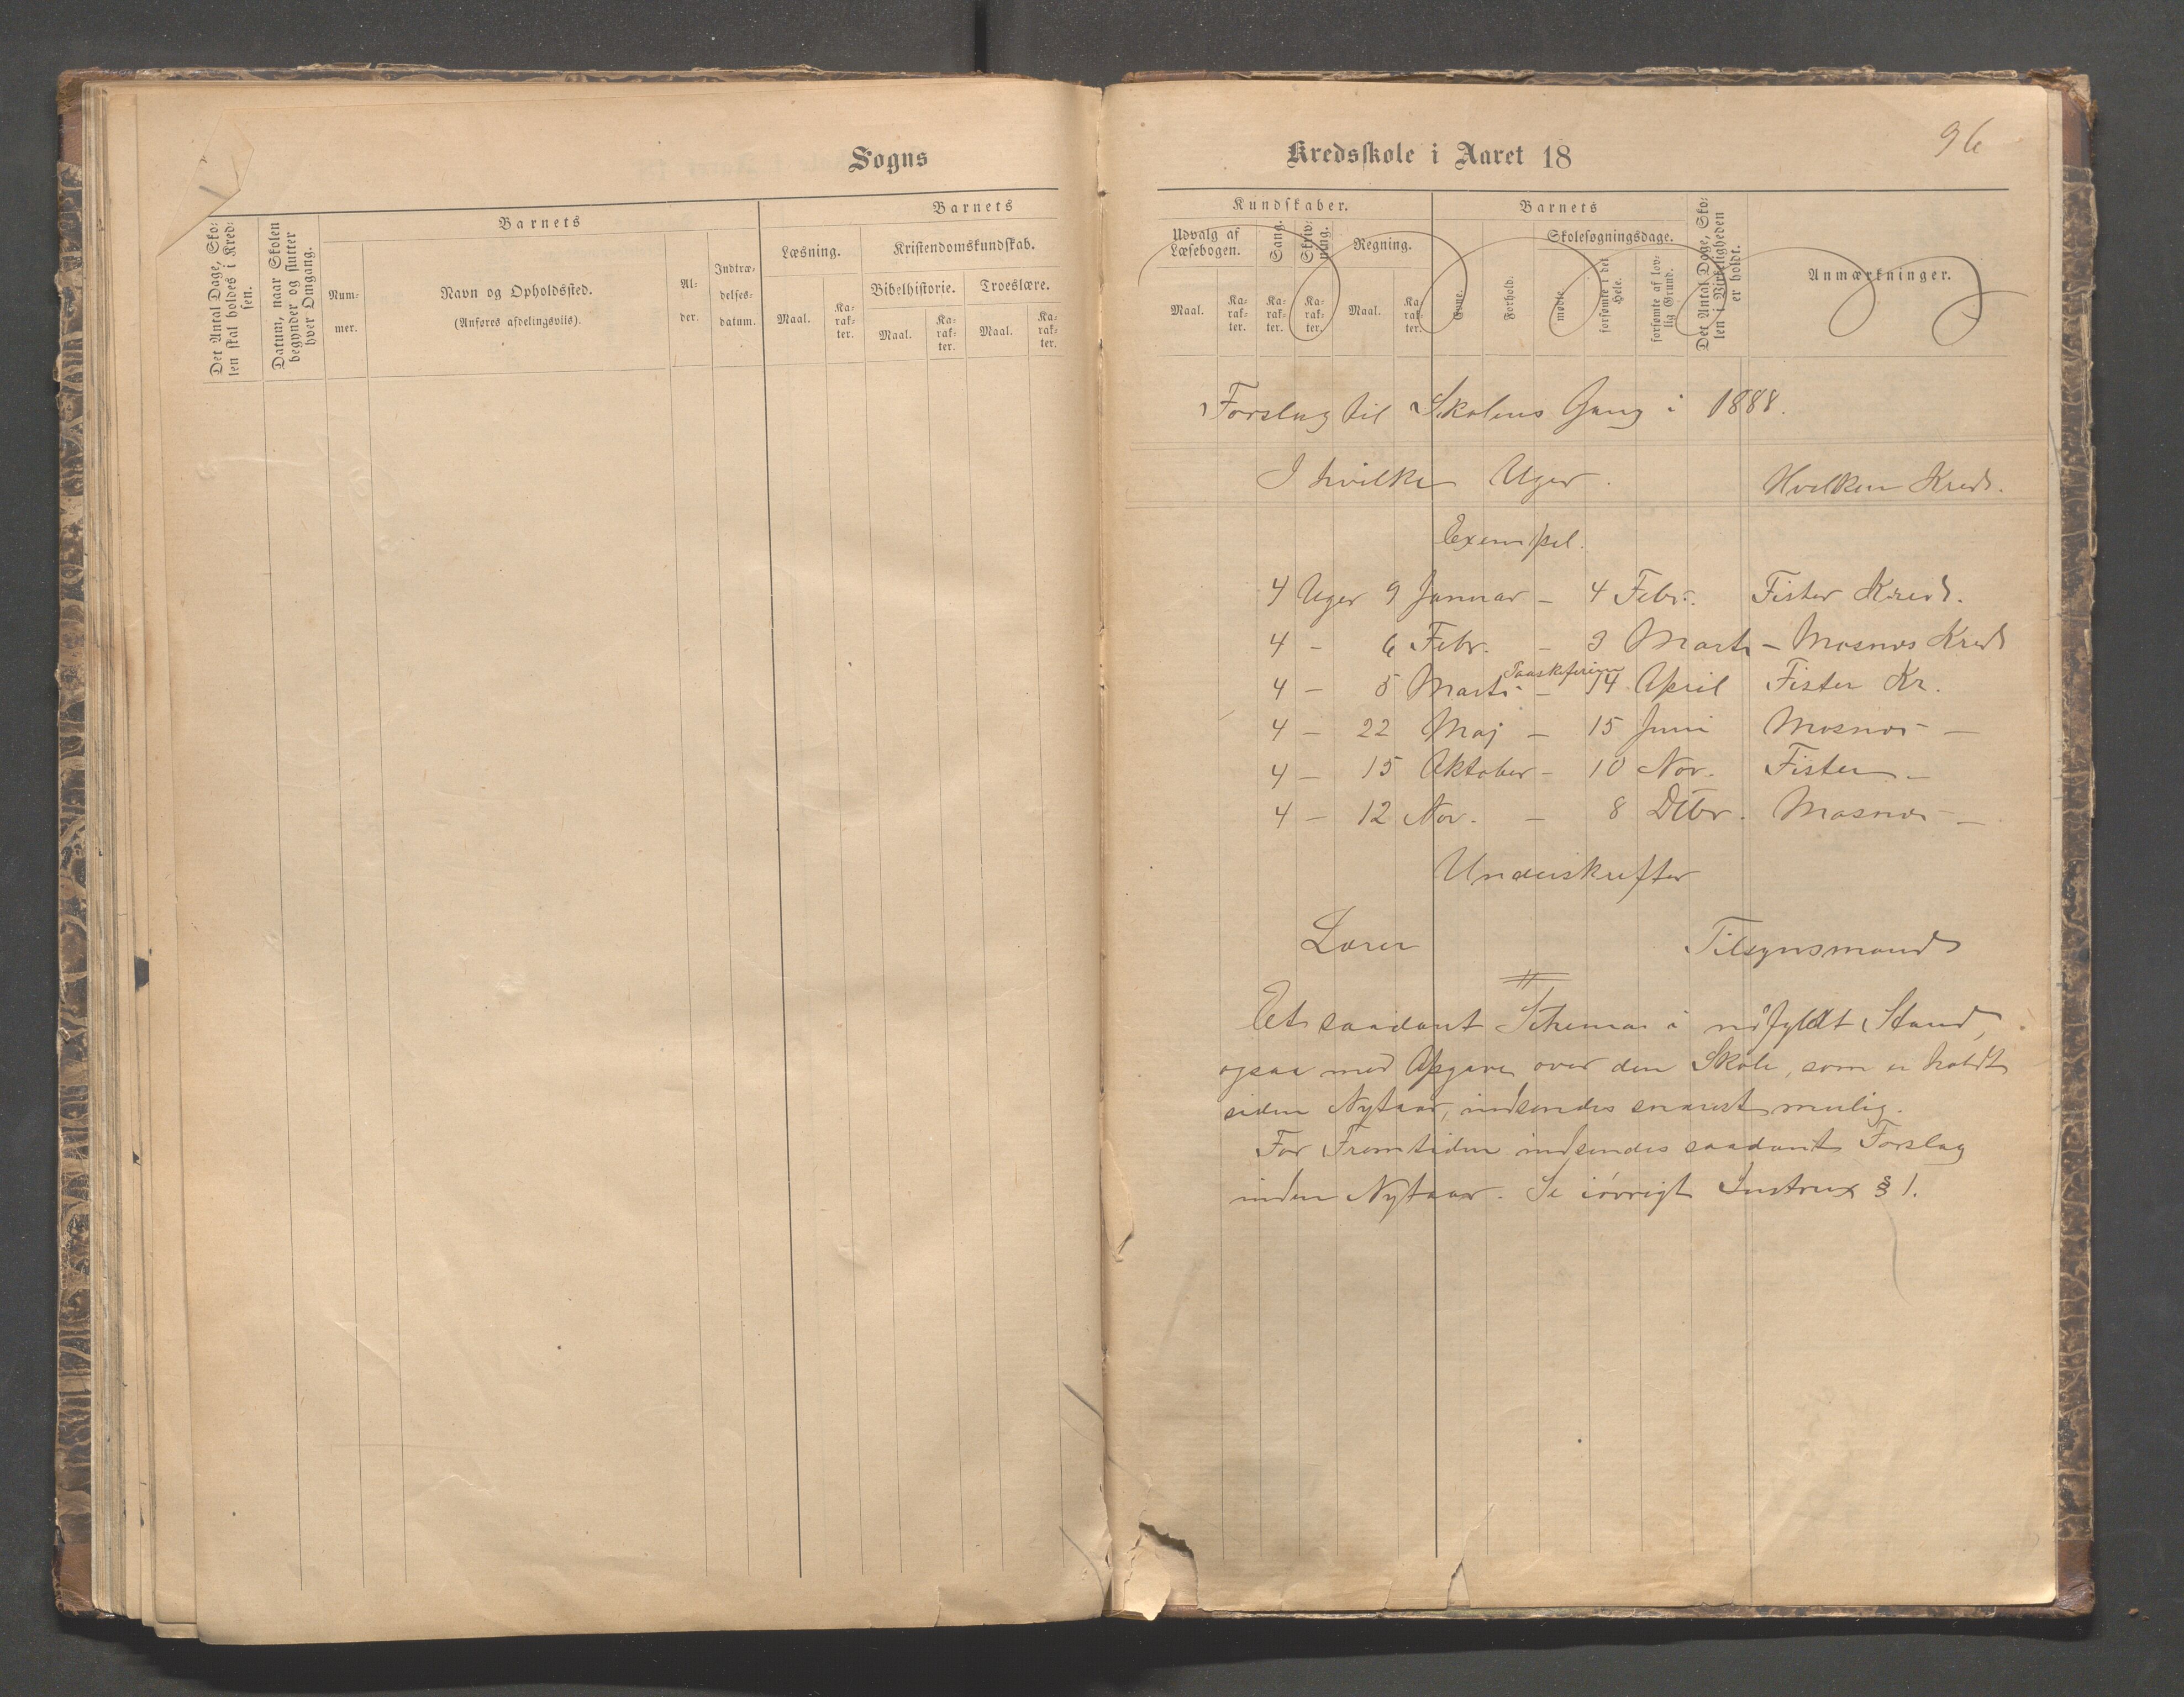 Sogns
Det Antal Dage, Sko-
len skal holdes i Kred-
sen.
Datum, naar Skolen
begynder og slutter
hver Omgang.
Barnets
Num-
mer.
Navn og Opholdssted.
(Anføres afdelingsviis).
Al-
der.
Indtræ-
delses-
datum.
Barnets
Læsning.
Maal.
Ka-
rak-
ter.
Kristendomskundskab.
Bibelhistorie.
Troeslære.
Maal.
Ka-
rak-
ter.
Maal.
Ka-
rak-
ter.
96
Kredsskole i Aaret 18
Kundskaber.
Udvalg af
Læsebogen.
Maal.
Ka-
rak-
ter.
Sang.
Ka-
rak-
ter.
Skriv-
ning.
Ka-
rak-
ter.
Regning.
Maal.
Ka-
rak-
ter.
Barnets
Evne.
Forhold.
Skolesøgningsdage.
mødte
forsømte i det
Hele.
forsømte af lov-
lig Grund.
Det Antal Dage, Sko-
len i Virkeligheden
er holdt.
Anmærkninger.
Forslag til Skolens Gang i 1888.
I hvilke Uger. Hvilken Kreds.
Exempel.
4 Uger 9 Januar – 4 Febr. Fister Kreds.
4 – 6 Febr. – 3 Marts – Mosnæs Kreds
Paaskeferien
4 – 5 Marts – 14 April Fister Kr.
4 – 22 Maj – 15 Juni Mosnæs –
4 – 15 Oktober – 10 Nov. Fister –
4 – 12 Nov. – 8 Dcbr. Mosnæs –
Underskrifter
Lærer Tilsynsmand
Et saadant Schema i udfyldt Stand,
ogsaa med Opgave over den Skole, som er holdt
siden Nytaar, indsendes snarest mulig.
For Fremtiden indsendes saadant Forslag
inden Nytaar. Se iøvrigt Instrux § 1.